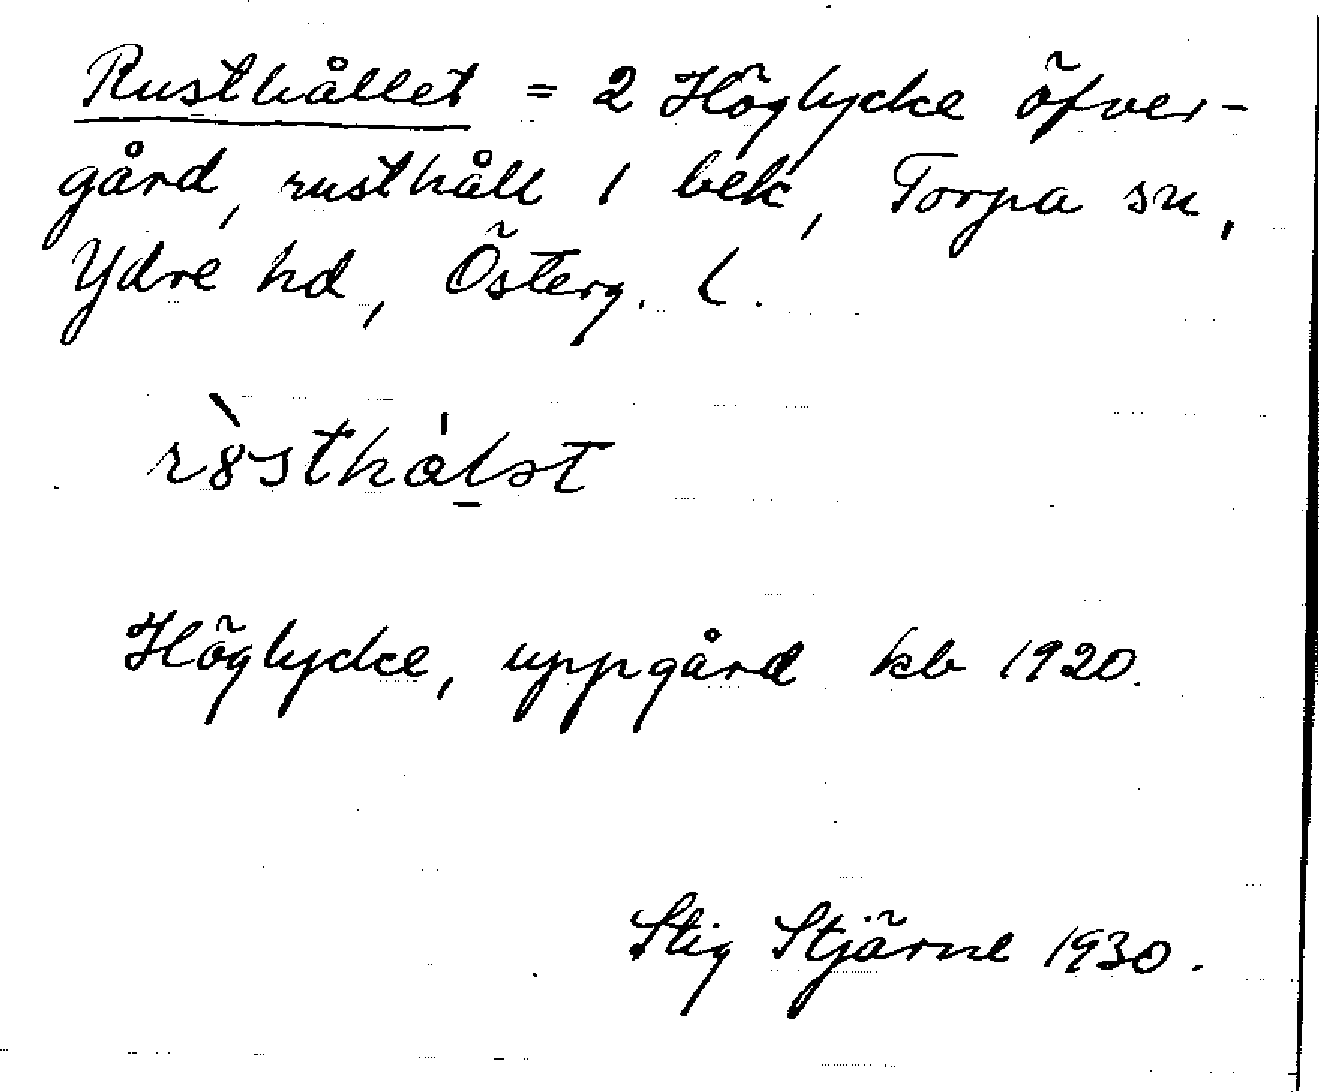 Rusthållet = 2 Höglycke öfver-
gård, rusthåll 1 bek, Torpa sn,
Ydre hd, Österg. l.
Höglycke, uppgård kb 1920.
Stig Stjärne 1930.